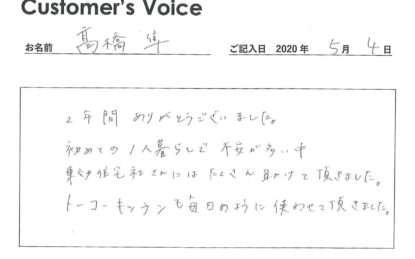 Customer's Voice
お名前 髙橋 隼 ご記入日 2020年 5月 4日
2年間 ありがとうございました。
初めての1人暮らしで 不安が多い中
東郊住宅社さんにはたくさん助けて頂きました。
トーコーキッチンも毎日のように使わせて頂きました。